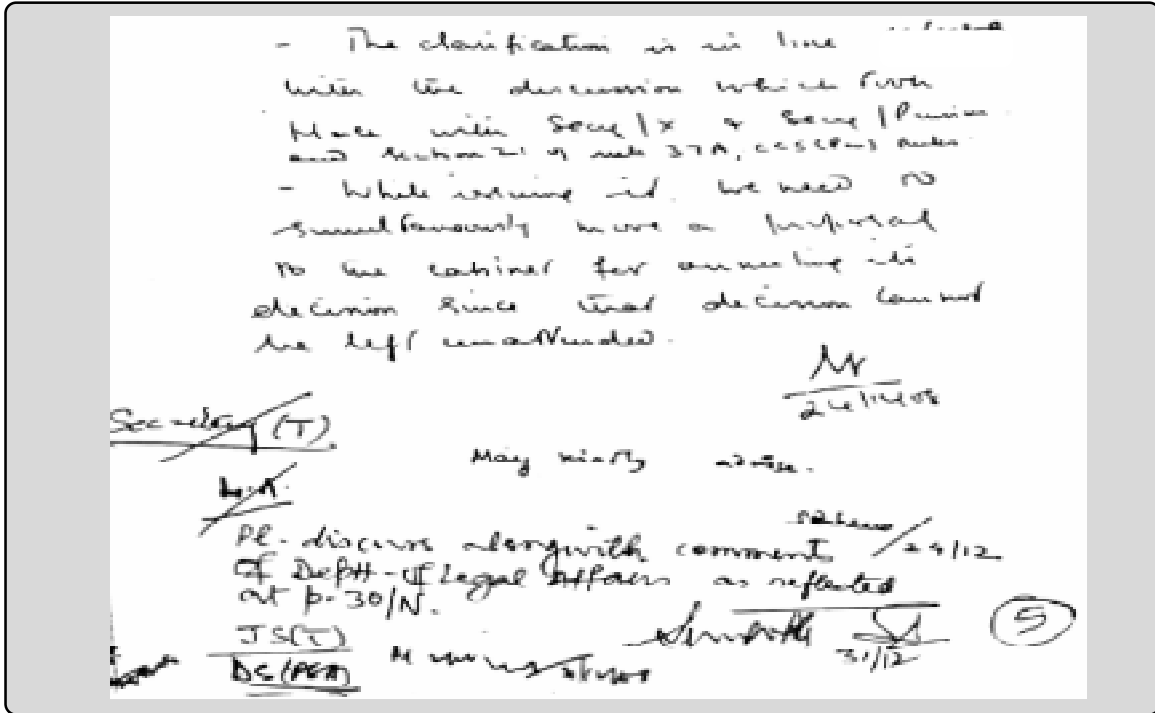 - The clarification is in line
with the discussion which I/we
with Secy/X & Secy/Pension
and Section 21 of rule 37A, CCS(P) Rules
- While issuing it, we need to
simultaneously move a proposal
to the cabinet for annulling its
decision since that decision cannot
be left unattended.
24/12/08
Secretary (T)
May kindly advise.
L.A.
/29/12
Pl. discuss alongwith comments
of Deptt. of Legal Affairs as reflected
at p-30/N.
JS(T)
31/12
5
DS(PGA)